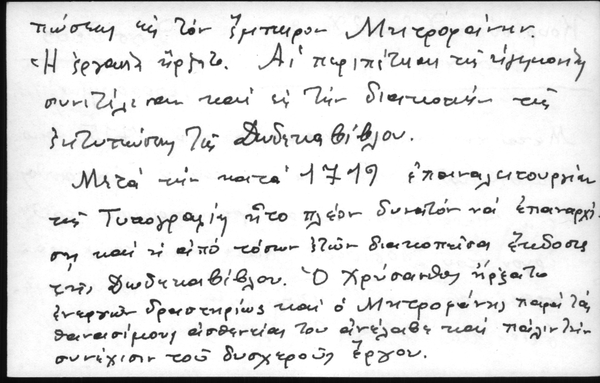 πώσεως εἰς τὸν ἔμπειρον Μητροφάνην.
Ἡ ἐργασία ἤρξατο. Αἱ περιπέτειαι τῆς ἡγεμονίας
συνετέλεσαν καὶ εἰς τὴν διακοπὴν τῆς
ἐκτυπώσεως τῆς Δωδεκαβίβλου.
Μετὰ τὴν κατὰ 1719 ἐπαναλειτουργίαν
τῆς Τυπογραφίας ἦτο πλέον δυνατὸν νὰ ἐπαναρχί-
σῃ καὶ ἡ ἀπὸ τόσων ἐτῶν διακοπεῖσα ἔκδοσις
τῆς Δωδεκαβίβλου. Ὁ Χρύσανθος ἤρξατο
ἐνεργῶν δραστηρίως καὶ ὁ Μητροφάνης παρὰ τὰς
θανασίμους ἀσθενείας του ἀνέλαβε καὶ πάλιν τὴν
συνέχισιν τοῦ δυσχεροῦς ἔργου.